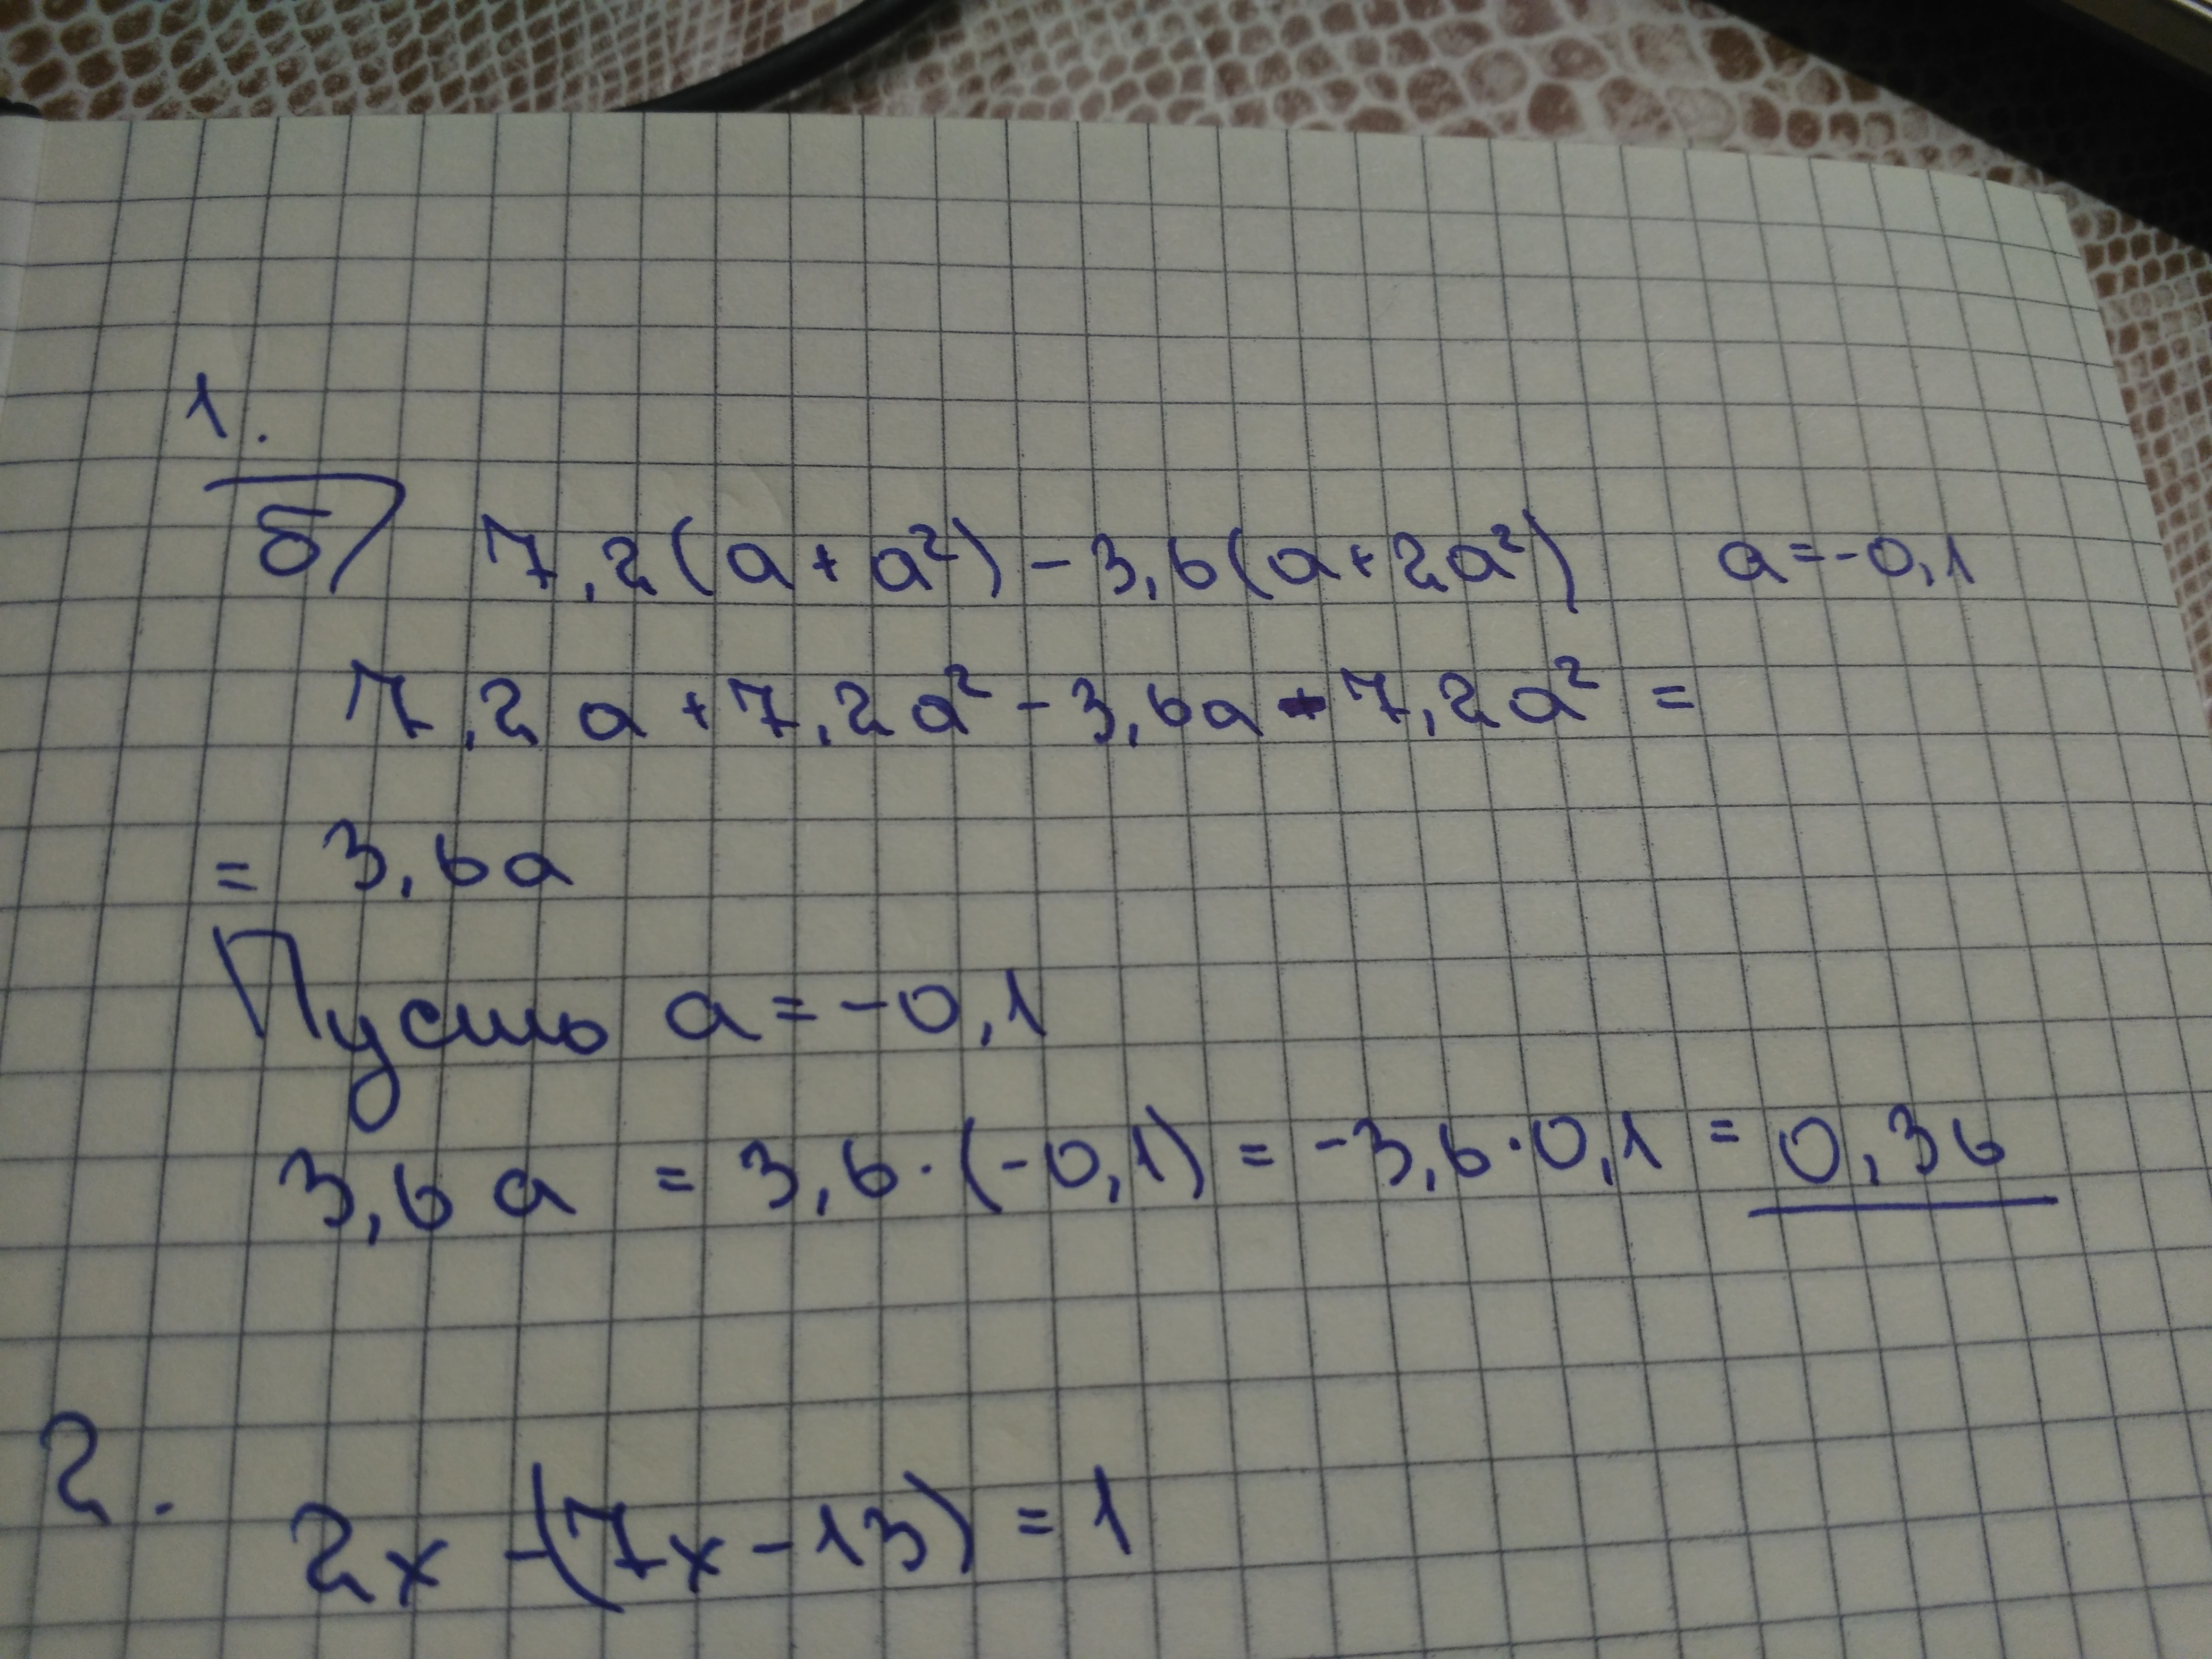 1.
б) 7,2(a+a²)-3,6(a+2a²) a=-0,1
7,2a+7,2a²-3,6a-7,2a²=
= 3,6a
Пусть a=-0,1
3,6a = 3,6·(-0,1) = -3,6·0,1 = 0,36
2.
2x-(7x-13)=1